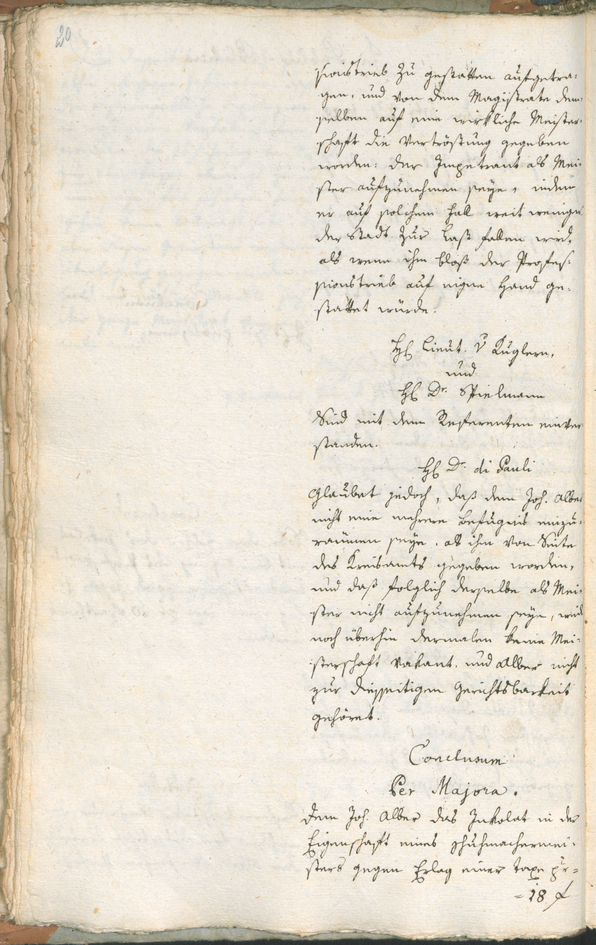 20
sionstrieb zu gestatten aufgetra-
gen, und von dem Magistrate dem-
selben auf eine wirkliche Meister-
schaft die Vertröstung gegeben
worden: der Impetrant als Mei-
ster aufzunehmen seye, indem
er auf solchem Fall weit weniger
der Stadt zur Last fallen wird,
als wenn ihm bloß der Profes-
sionstrieb auf eigene Hand ge-
stattet würde.
H. Lieut. v Kuglern,
und
H. Dr. Spielmann
Sind mit dem Referenten einver
standen.
H. Dr. di Pauli
Glaubet jedoch, daß dem Joh. Alber
nicht eine mehrere Befugnis einzu-
raümen seye, als ihm von Seite
des Kreisamts gegeben worden,
und daß folglich derselbe als Mei-
ster nicht aufzunehmen seye, weil
noch überhin dermalen keine Mei-
sterschaft vakant, und Alber nicht
zur diesseitigen Gerichtsbarkeit
gehöret.
Conclusum
Per Majora.
Dem Joh. Alber das Inkolat in der
Eigenschaft eines Schuhmachermei-
sters gegen Erlag einer Taxe pr =
= 18 f